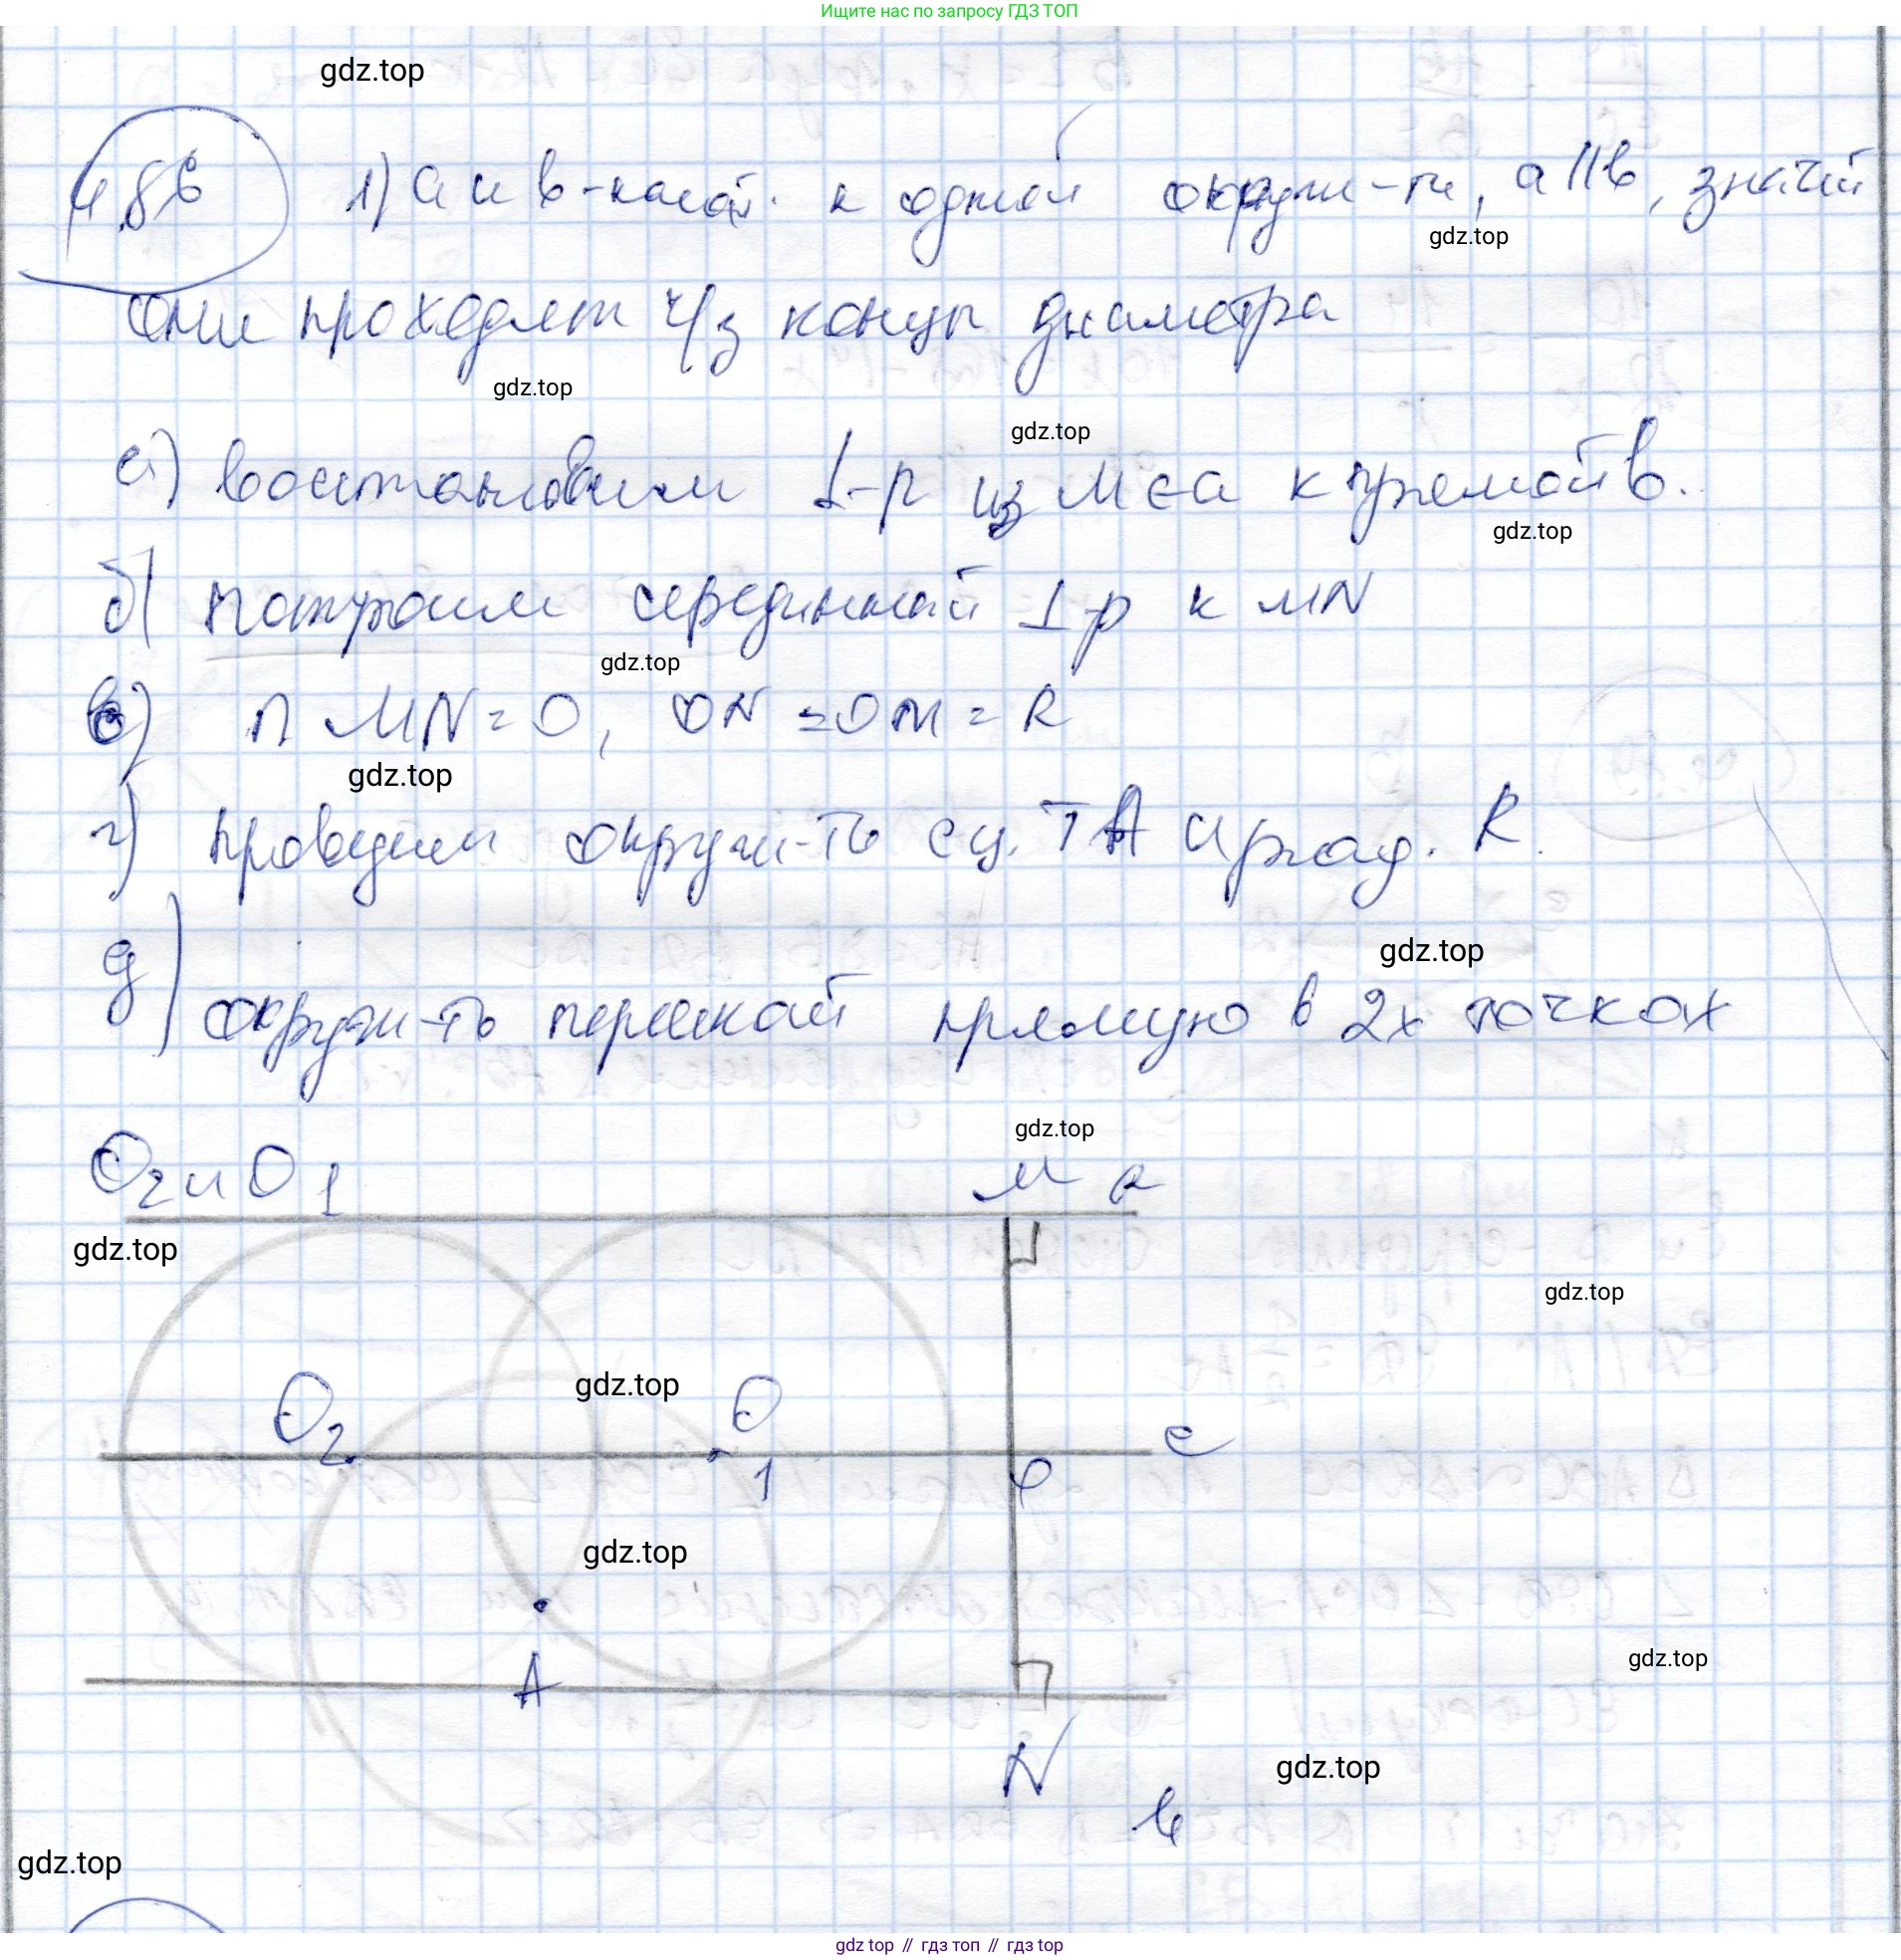 Ищите нас по запросу ГДЗ ТОП
gdz.top
486 1) а и в - касат. к одной окружн-ти, а || в, значит
gdz.top
они проходят ч/з концы диаметра
gdz.top
gdz.top
а) восстановим ⊥-р из М ∈ а к прямой в.
gdz.top
б) построим серединный ⊥р к MN
gdz.top
в) ∩ MN = O, ON = OM = R
gdz.top
г) проведем окружн-ть с ц. т A и рад. R.
gdz.top
д) окружн-ть пересекает прямую в 2х точках
gdz.top
O2 и O1
M a
gdz.top
gdz.top
O2 gdz.top O1 c
gdz.top
A
gdz.top
N
gdz.top
в
gdz.top
gdz top // гдз топ // гдз top